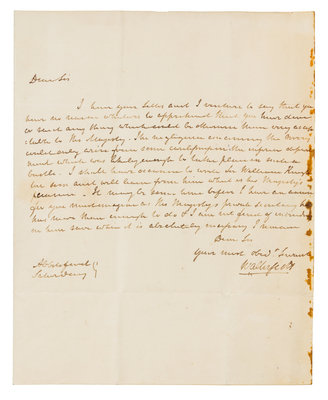 Dear Sir
I have your Letter and I venture to say that you
have no reason whatever to apprehend that you have done
or said any thing which could be otherwise than very accep-
table to His Majesty. The negligence concerning the
could only arise from some in the
which was likely enough to take place in such a
bustle. I shall have occasion to write Sir William
soon and will learn from him what is His Majesty's
pleasure. It may be some time before I have an
give you His Majesty's private secretary
has more than enough to do & I am not fond of intruding
on him save when it is absolutely necessary. I remain
Dear Sir
Your most obedt Servant
Walter Scott
Abbotsford
Saturday